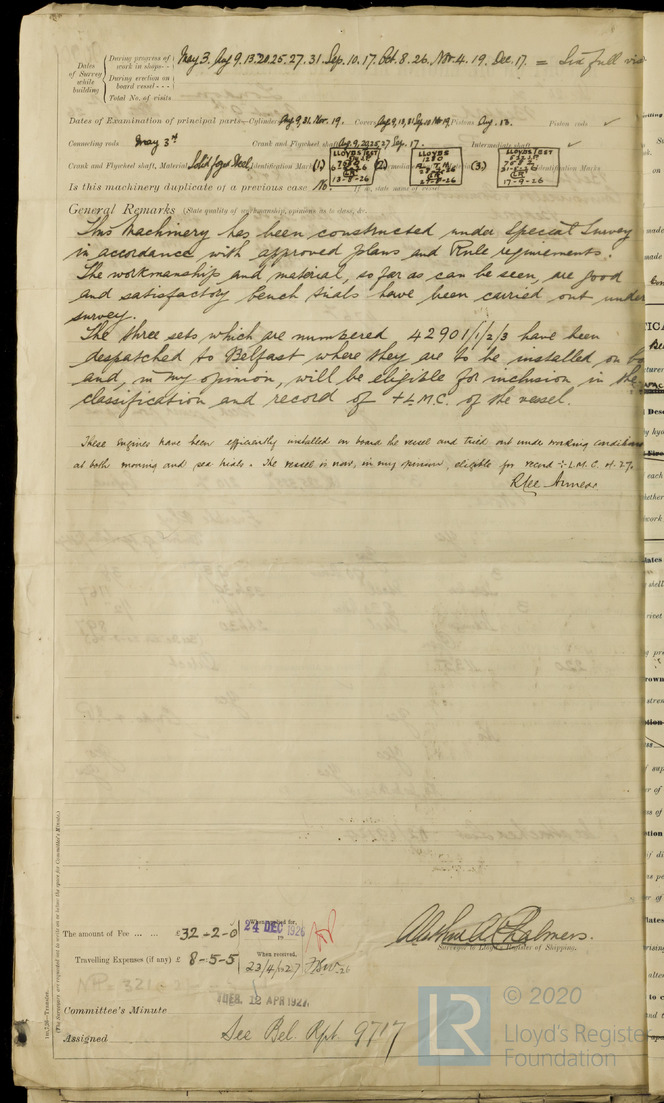 Dates of Survey while building
During progress of work in shops - - May 3. Aug 9. 13. 20. 25. 27. 31. Sep. 10. 17. Oct. 8. 26. Nov. 4. 19. Dec. 17. = Six full
During erection on board vessel - - -
Total No. of visits
Dates of Examination of principal parts—Cylinders Aug 9, 31, Nov. 19. Covers Pistons Aug. 13. Piston rods ✓
Connecting rods May 3rd Crank and Flywheel shaft Aug. 9, 20, 25, 27 Sep. 17. Intermediate shaft ✓
Crank and Flywheel shaft, Material Solid forged Steel Identification Mark (1) LLOYDS TEST 13-8-26 (2) LLOYDS 1280 27-8-26 (3) LLOYDS TEST 17-9-26 Identification Marks
Is this machinery duplicate of a previous case No. If so, state name of vessel
General Remarks (State quality of workmanship, opinions as to class, &c.
This Machinery has been constructed under Special Survey
in accordance with approved plans and Rule requirements.
The workmanship and material, so far as can be seen, are good
and satisfactory bench trials have been carried out under
survey.
The three sets which are numbered 42901/1/2/3 have been
despatched to Belfast where they are to be installed on
and, in my opinion, will be eligible for inclusion in the
classification and record of + L.M.C. of the vessel.
These engines have been efficiently installed on board the vessel and tried out under working conditions
at both mooring and sea trials. The vessel is now, in my opinion, eligible for record + L.M.C. 4.27.
The amount of Fee ... ... £ 32-2-0 When applied for, 24 DEC 1926
Travelling Expenses (if any) £ 8-5-5 When received, 23/4/1927
Chalmers.
Surveyor to Lloyd's Register of Shipping.
Committee's Minute TUES. 12 APR 1927
Assigned See Bel. Rpt. 9717
LR © 2020
Lloyd's Register
Foundation